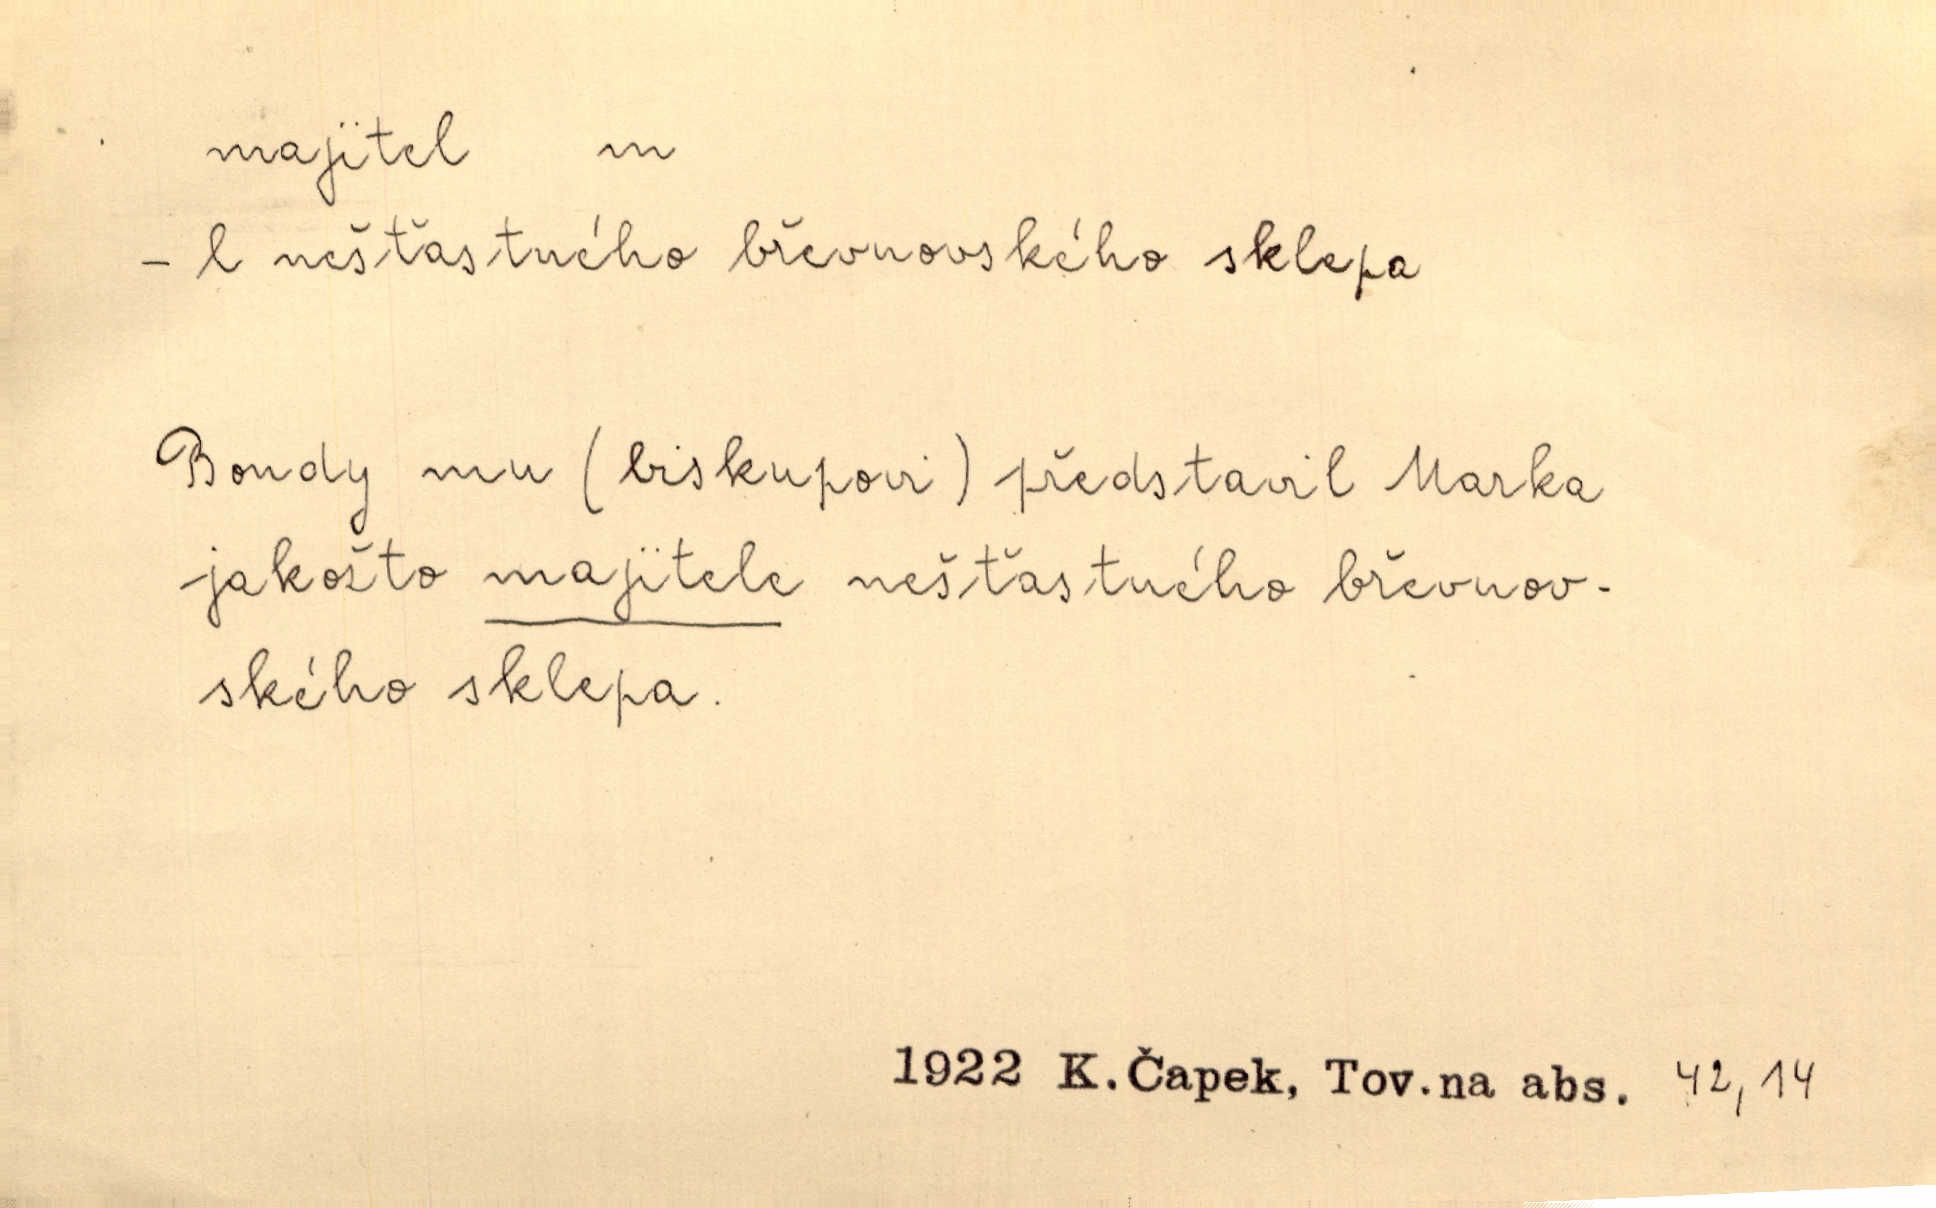 majitel m
– l nešťastného břevnovského sklepa
Bondy mu (biskupovi) představil Marka
jakožto majitele nešťastného břevnov-
ského sklepa.
1922 K.Čapek, Tov.na abs. 42,14